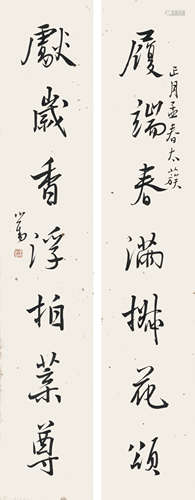 履端春滿椒花頌
正月孟春太蔟
獻歲香浮柏葉尊
心畬